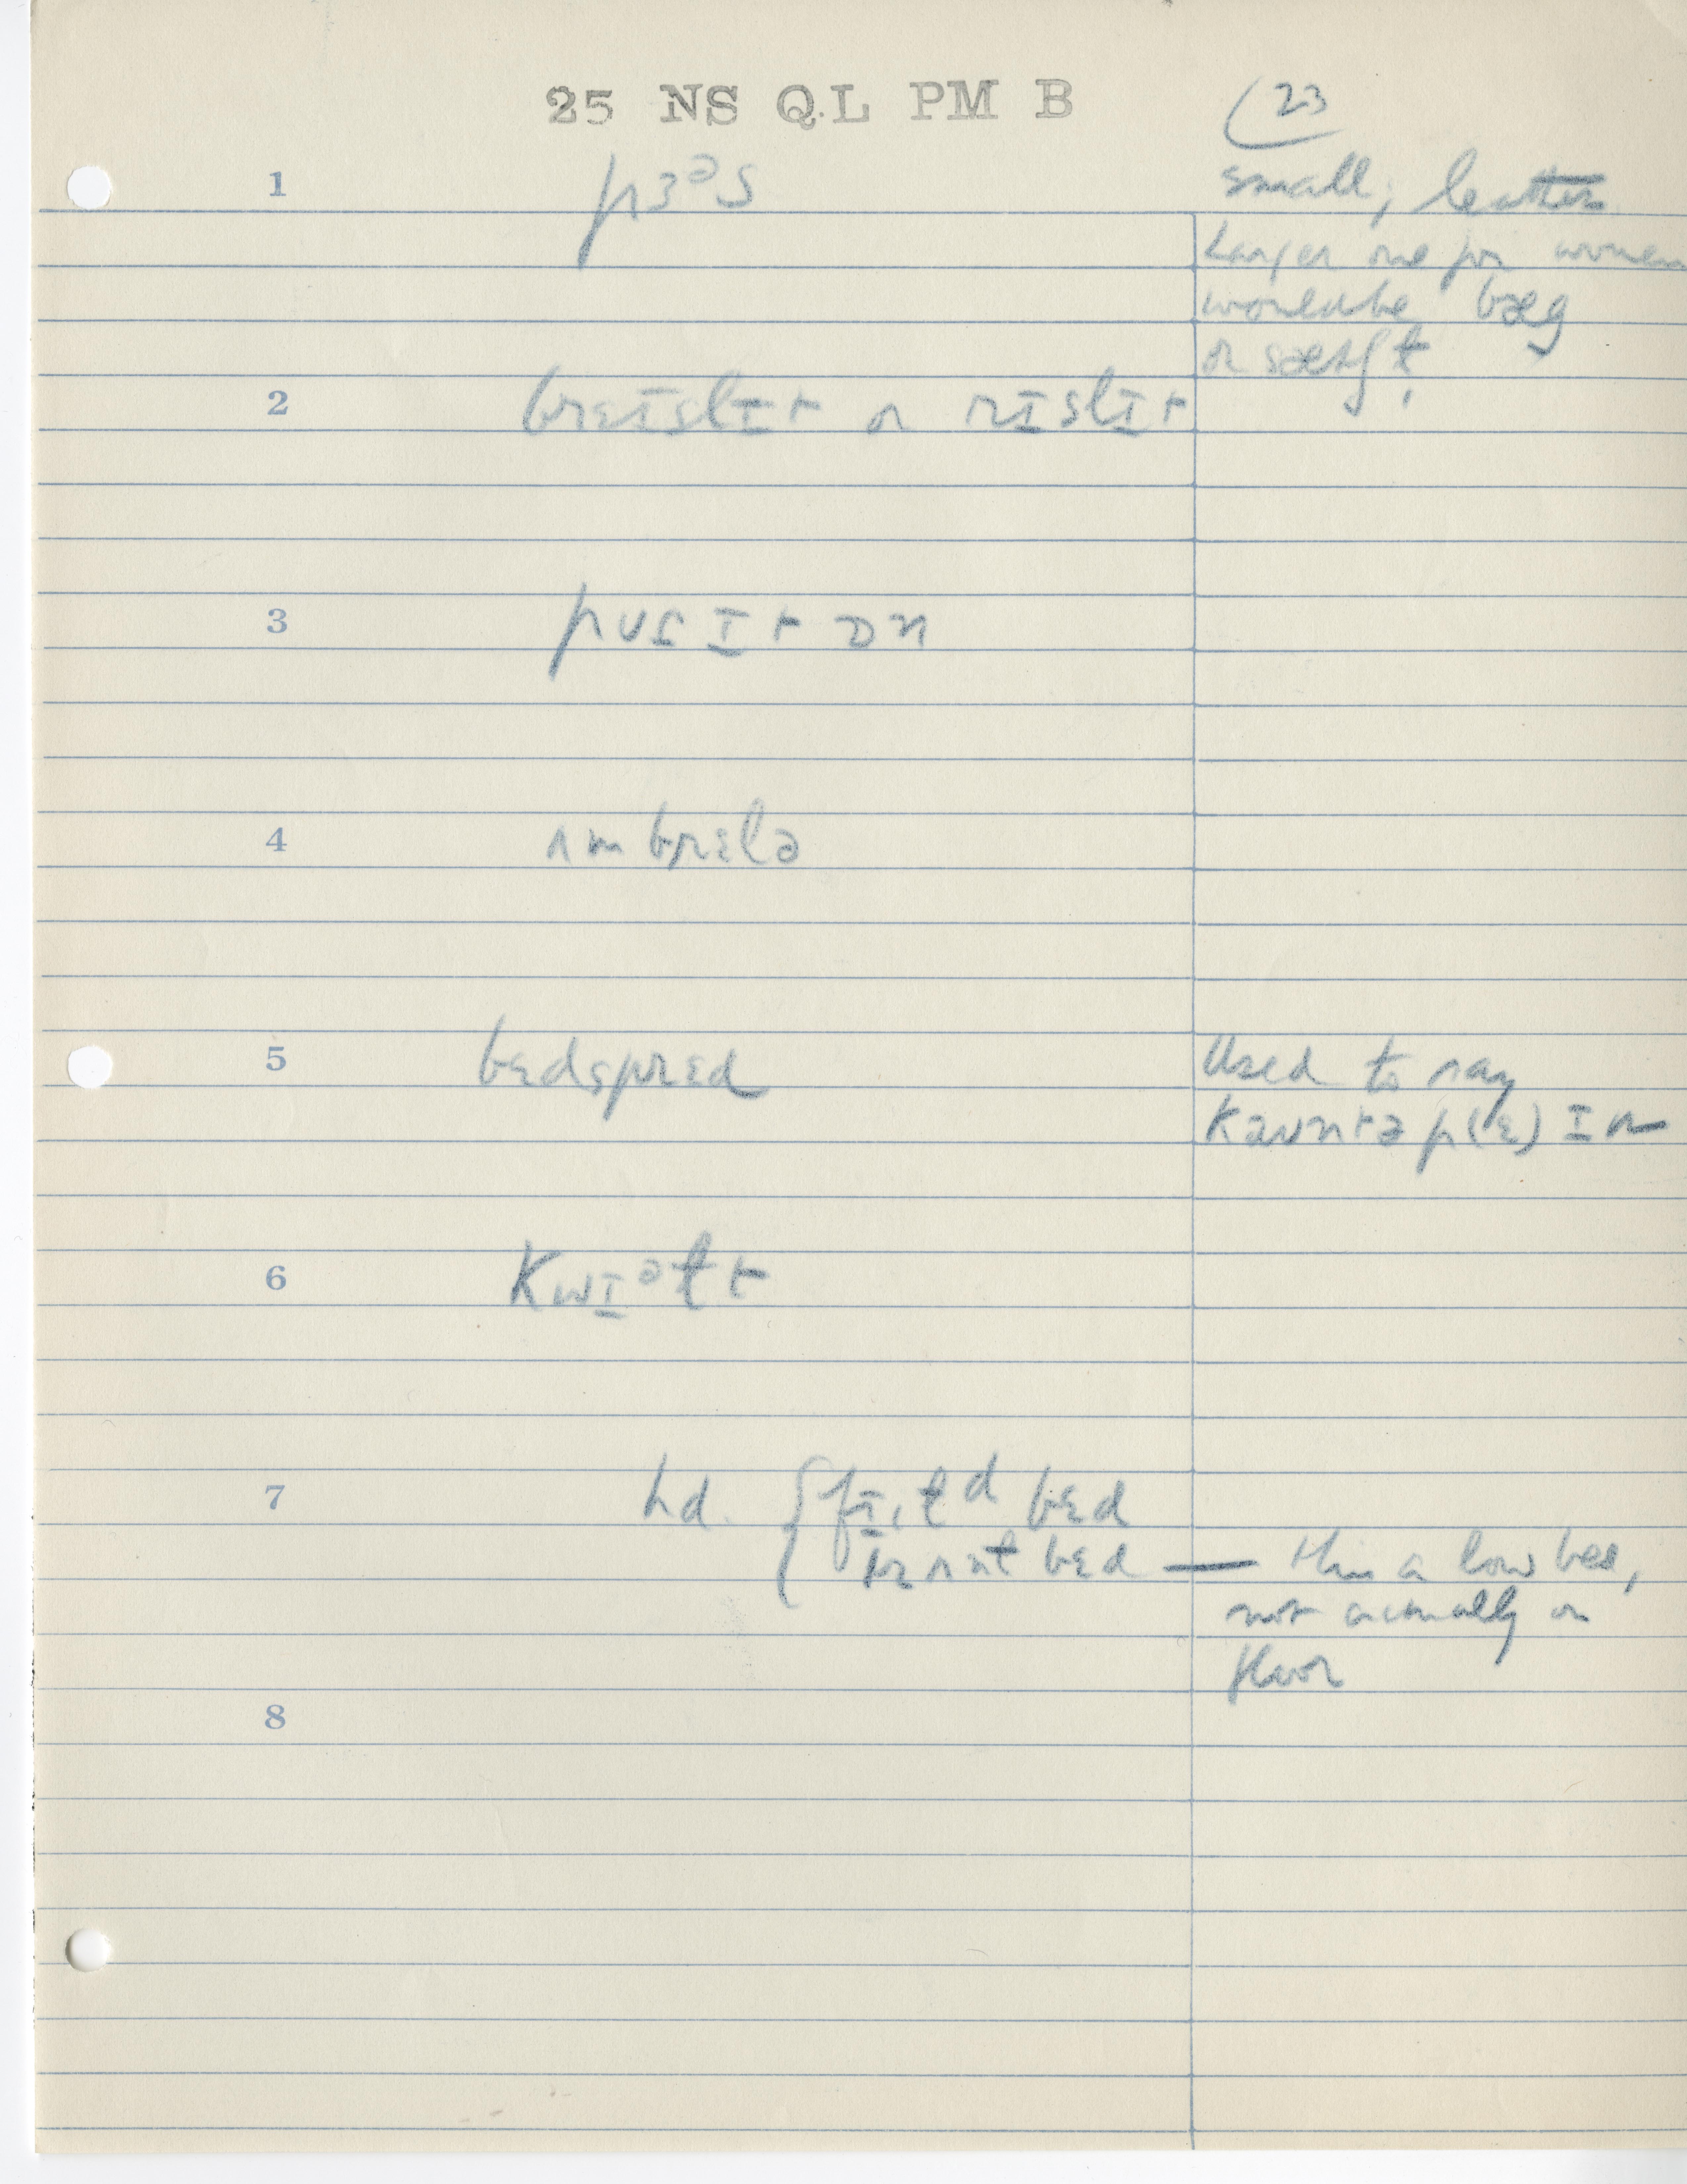 25 NS QL PM B
23
1 pɜᵊs small, leather
Larger one for women
would be bæg
2 brɛɪslɪt or rɪslɪt
3 pʊt ɪt ɒn
4 ʌmbrɛlə
5 bɛdsprɛd Used to say
kəʊntəp(ɛ)ɪn
6 kwɪᵊɫt
7 hd. bɛd
bɛd — this a low bed,
not on
floor
8